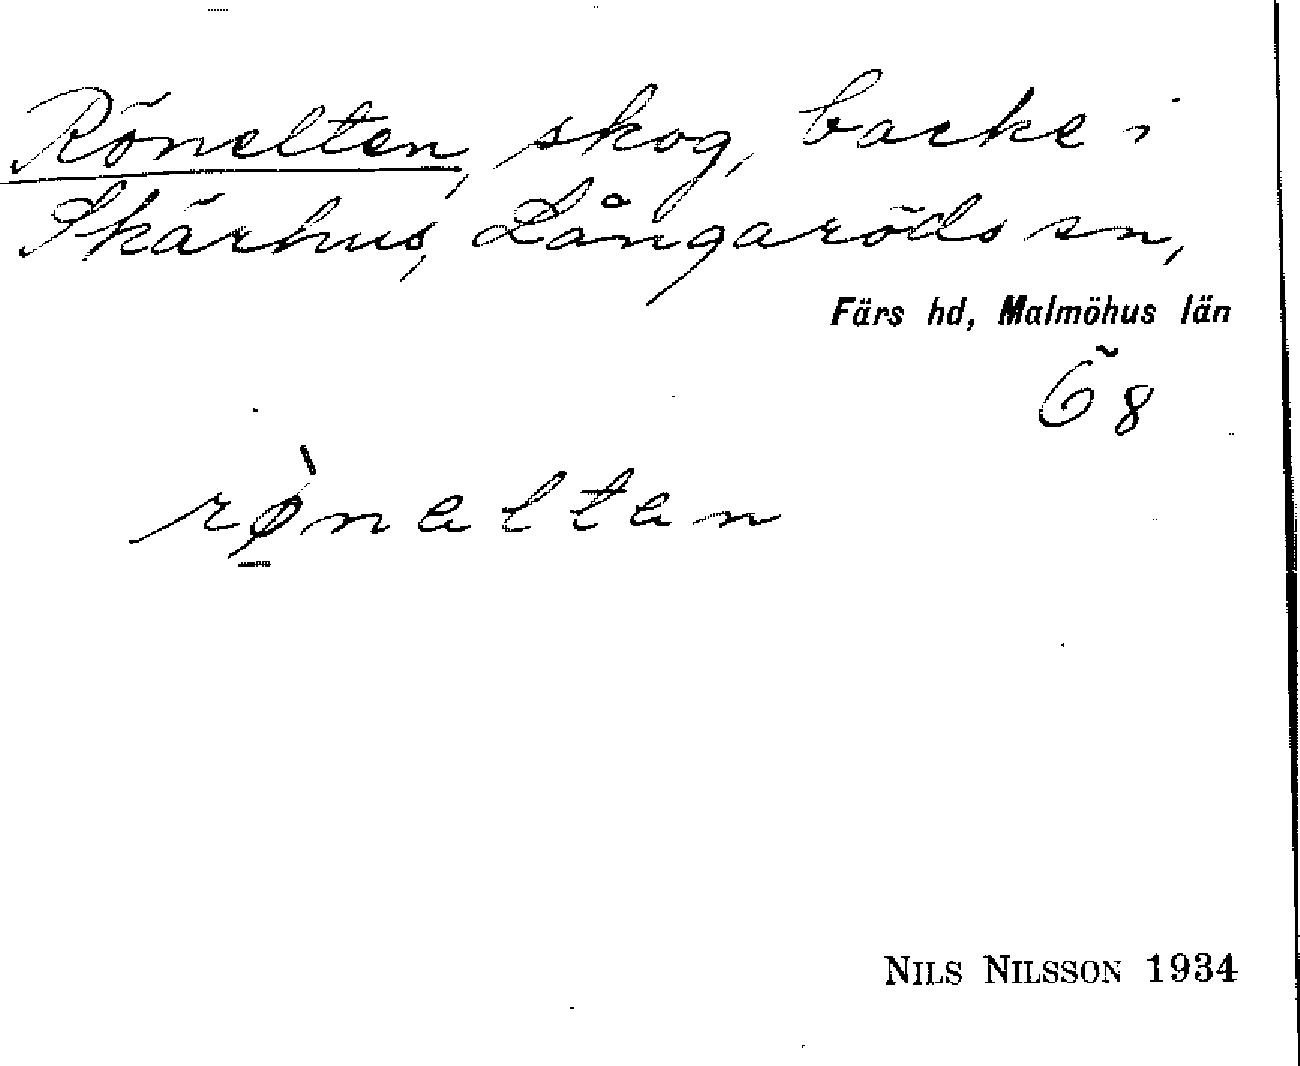 Rönelten, skog, backe i
Skärhus, Långaröds sn,
Färs hd, Malmöhus län
Ö 8
rø̀nältän
NILS NILSSON 1934